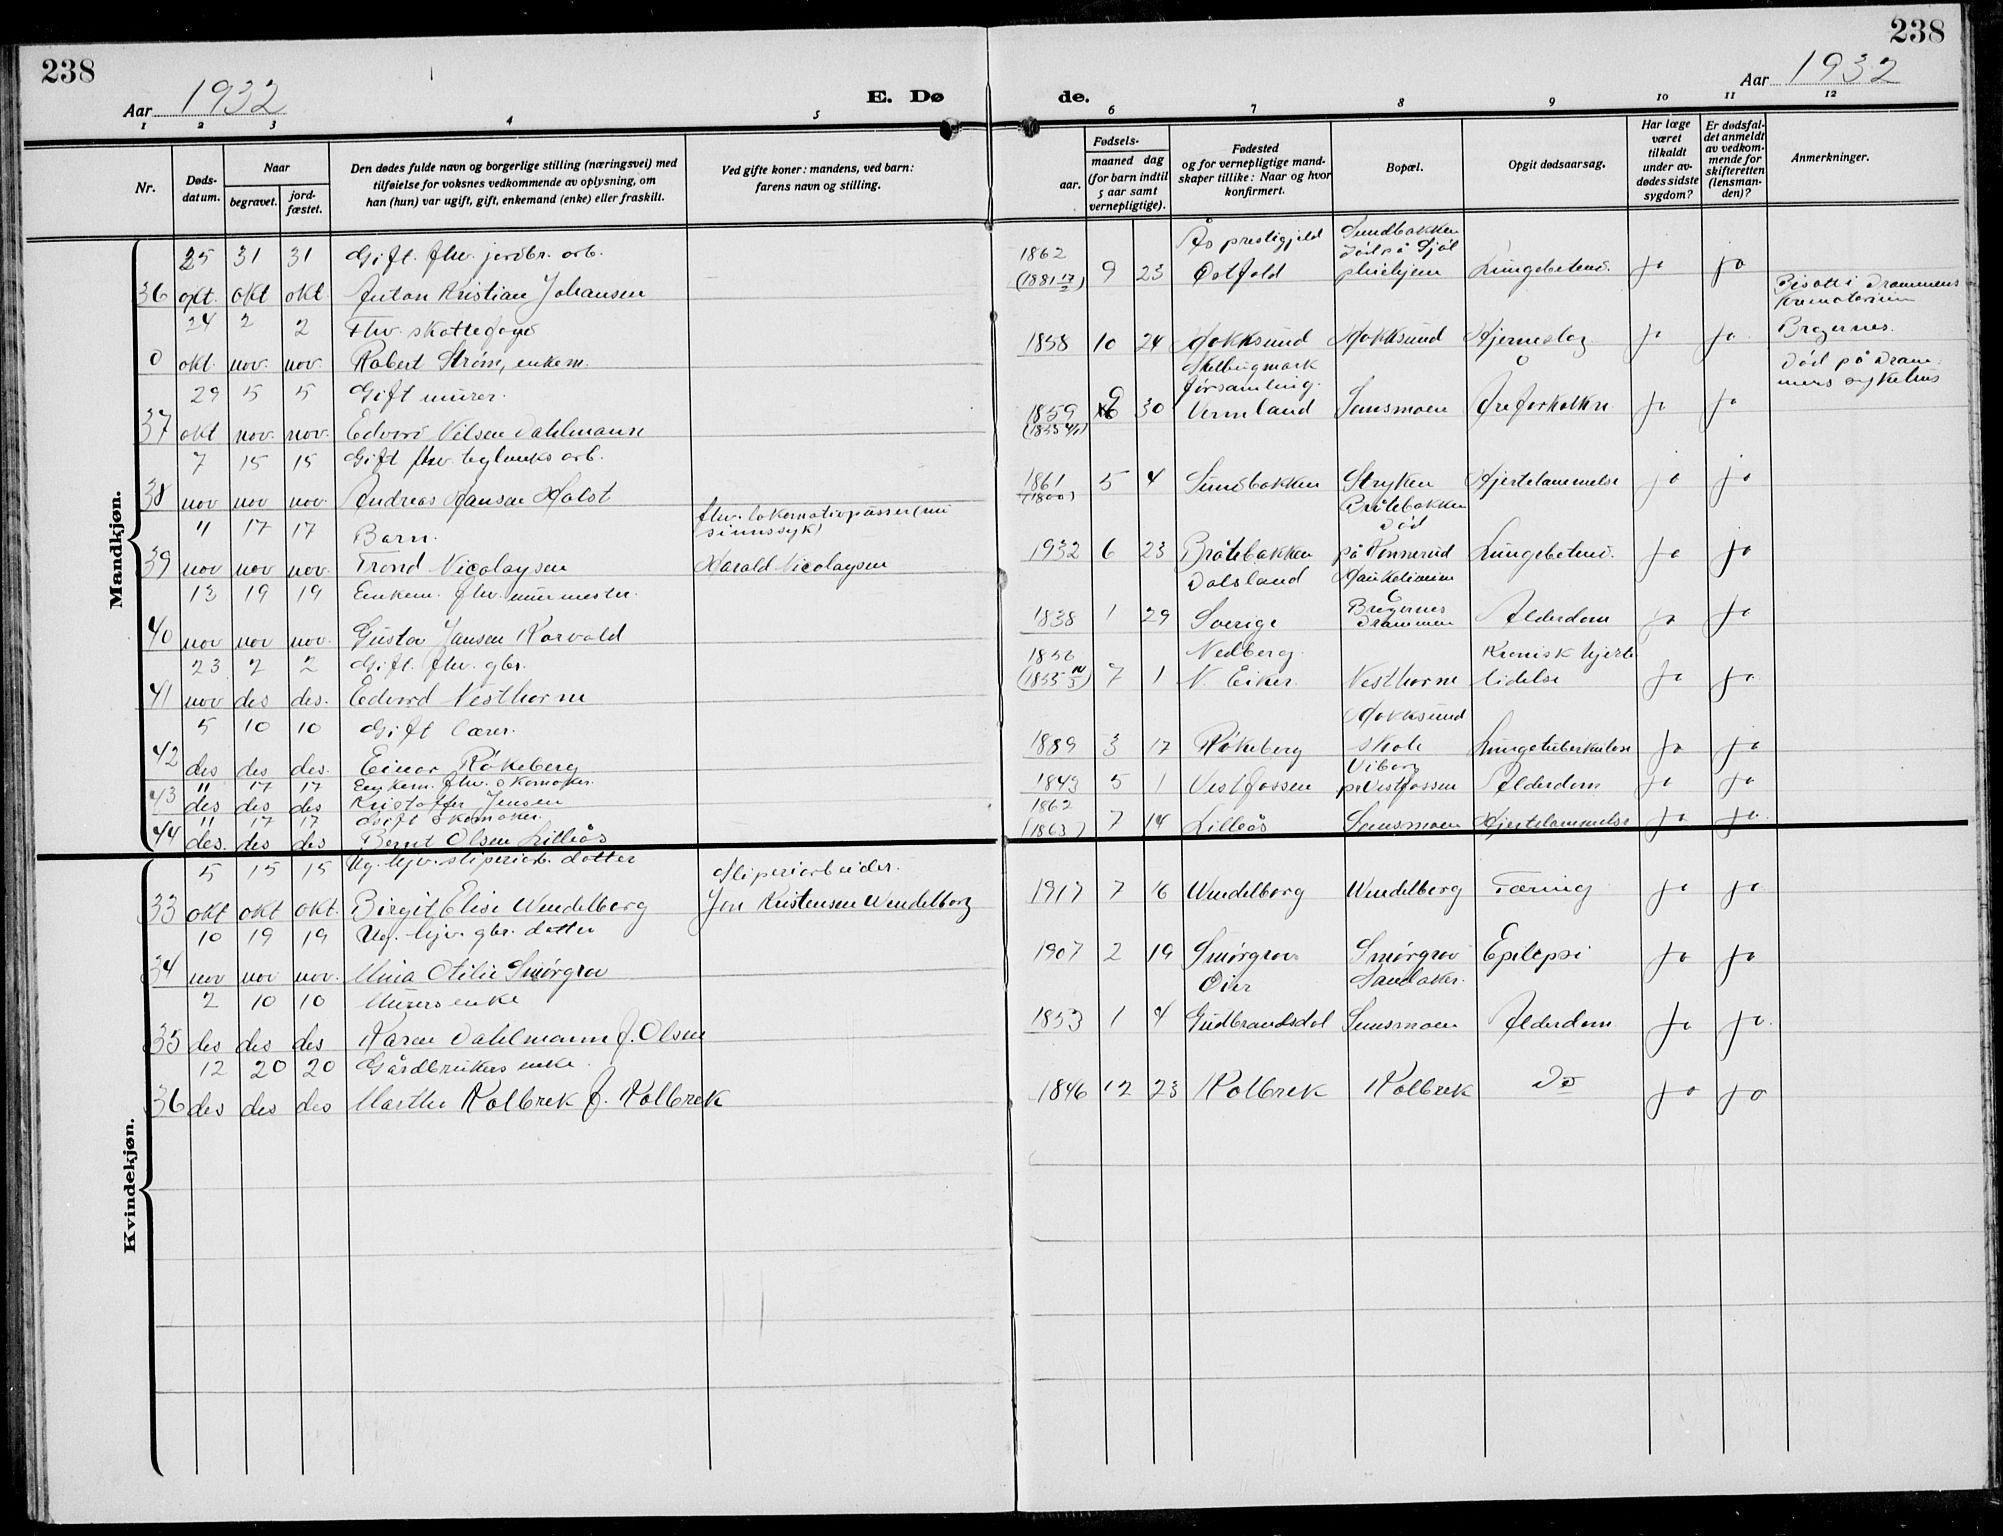 238
238
Aar 1932
E. Dø
de.
Aar 1932
1 2 3 4 5 6 7 8 9 10 11 12
Nr.
Døds-
datum.
Naar
begravet.
jord-
fæstet.
Den dødes fulde navn og borgerlige stilling (næringsvei) med
tilføielse for voksnes vedkommende av oplysning, om
han (hun) var ugift, gift, enkemand (enke) eller fraskilt.
Ved gifte koner: mandens, ved barn:
farens navn og stilling.
Fødsels-
aar.
maaned dag
(for barn indtil
5 aar samt
vernepligtige).
Fødested
og for vernepligtige mand-
skaper tillike: Naar og hvor
konfirmert.
Bopæl.
Opgit dødsaarsag.
Har læge
været
tilkaldt
under av-
dødes sidste
sygdom?
Er dødsfal-
det anmeldt
av vedkom-
mende for
skifteretten
(lensman-
den)?
Anmerkninger.
Mandkjøn.
25 31 31 Gift. fhv. jordbr. arb. 1862 Ås prestigjeld Sundbakken
36 okt. okt okt. Anton Kristian Johansen 9 23 Østfold Lungebeten. ja ja
Bisatt i Drammens
Krematorium
24 2 2 Fhv. skattefoged
0 okt. nov. nov. Robert Strøm, enkem. 1858 10 24 Hokksund Hokksund Hjerneslag ja ja Bragernes.
Død på Dram-
mens sykehus
29 5 5 Gift murer. forsamling.
37 okt nov. nov. Edvard Nilsen Dahlmann 1859 9 30 Vermland Semsmoen Åreforkalkn ja ja
7 15 15 Gift fhv. teglverks arb.
38 nov nov nov. Andreas Hansen Holst 1861 5 4 Sundbakken Stryken Hjertelammelse ja ja
11 17 17 Barn. fhv. lokomotivpusser (nu
sinnssyk)
Bråtebakken
Død
39 nov nov nov. Trond Nicolaysen Harald Nicolaysen 1932 6 23 Bråtebakken på Konnerud Lungebeten. ja ja
13 19 19 Enkem. fhv. murmester. Dalsland
40 nov nov nov. Gustav Jansen Korvald 1838 1 29 Sverige Bragernes Drammen Alderdom ja ja
23 2 2 Gift. fhv. gbr. Kronisk hjerte
41 nov des des. Edvard Vesthorne 7 1 N. Eiker. Vesthorne lidelse ja ja
5 10 10 Gift lærer. Hokksund
42 des des des. Einar Røkeberg 1889 3 17 Røkeberg skole Lungetuberkulose ja ja
11 17 17 Enkem. fhv. skomaker. Viborg
43 des des des Kristoffer Jensen 1843 5 1 Vestfossen pr Vestfossen Alderdom ja ja
11 17 17 Gift skomaker. 1862
44 des. des des Bernt Olsen Lilleås (1863) 7 14 Lilleås Semsmoen Hjertelammelse ja ja
Kvindekjøn.
5 15 15 Ug. hjv. sliperiarb. datter Sliperiarbeider.
33 okt okt okt. Birgit Elise Wendelborg Jon Kristensen Wendelborg 1917 7 16 Wendelborg Wendelborg Tæring ja ja
10 19 19 Ug. hjv. gbr. datter
34 nov nov nov. Mina Otilie Smørgrav 1907 2 19 Smørgrav Smørgrav Epilepsi ja ja
2 10 10 Murers enke Øier Sandaker.
35 des des des Karen Dahlmann f. Olsen 1853 1 4 Gudbrandsdal Semsmoen Alderdom ja ja
12 20 20 Gårdbrukers enke
36 des des des Marthe Kolbrek f. Kolbrek 1846 12 23 Kolbrek Kolbrek Do ja ja